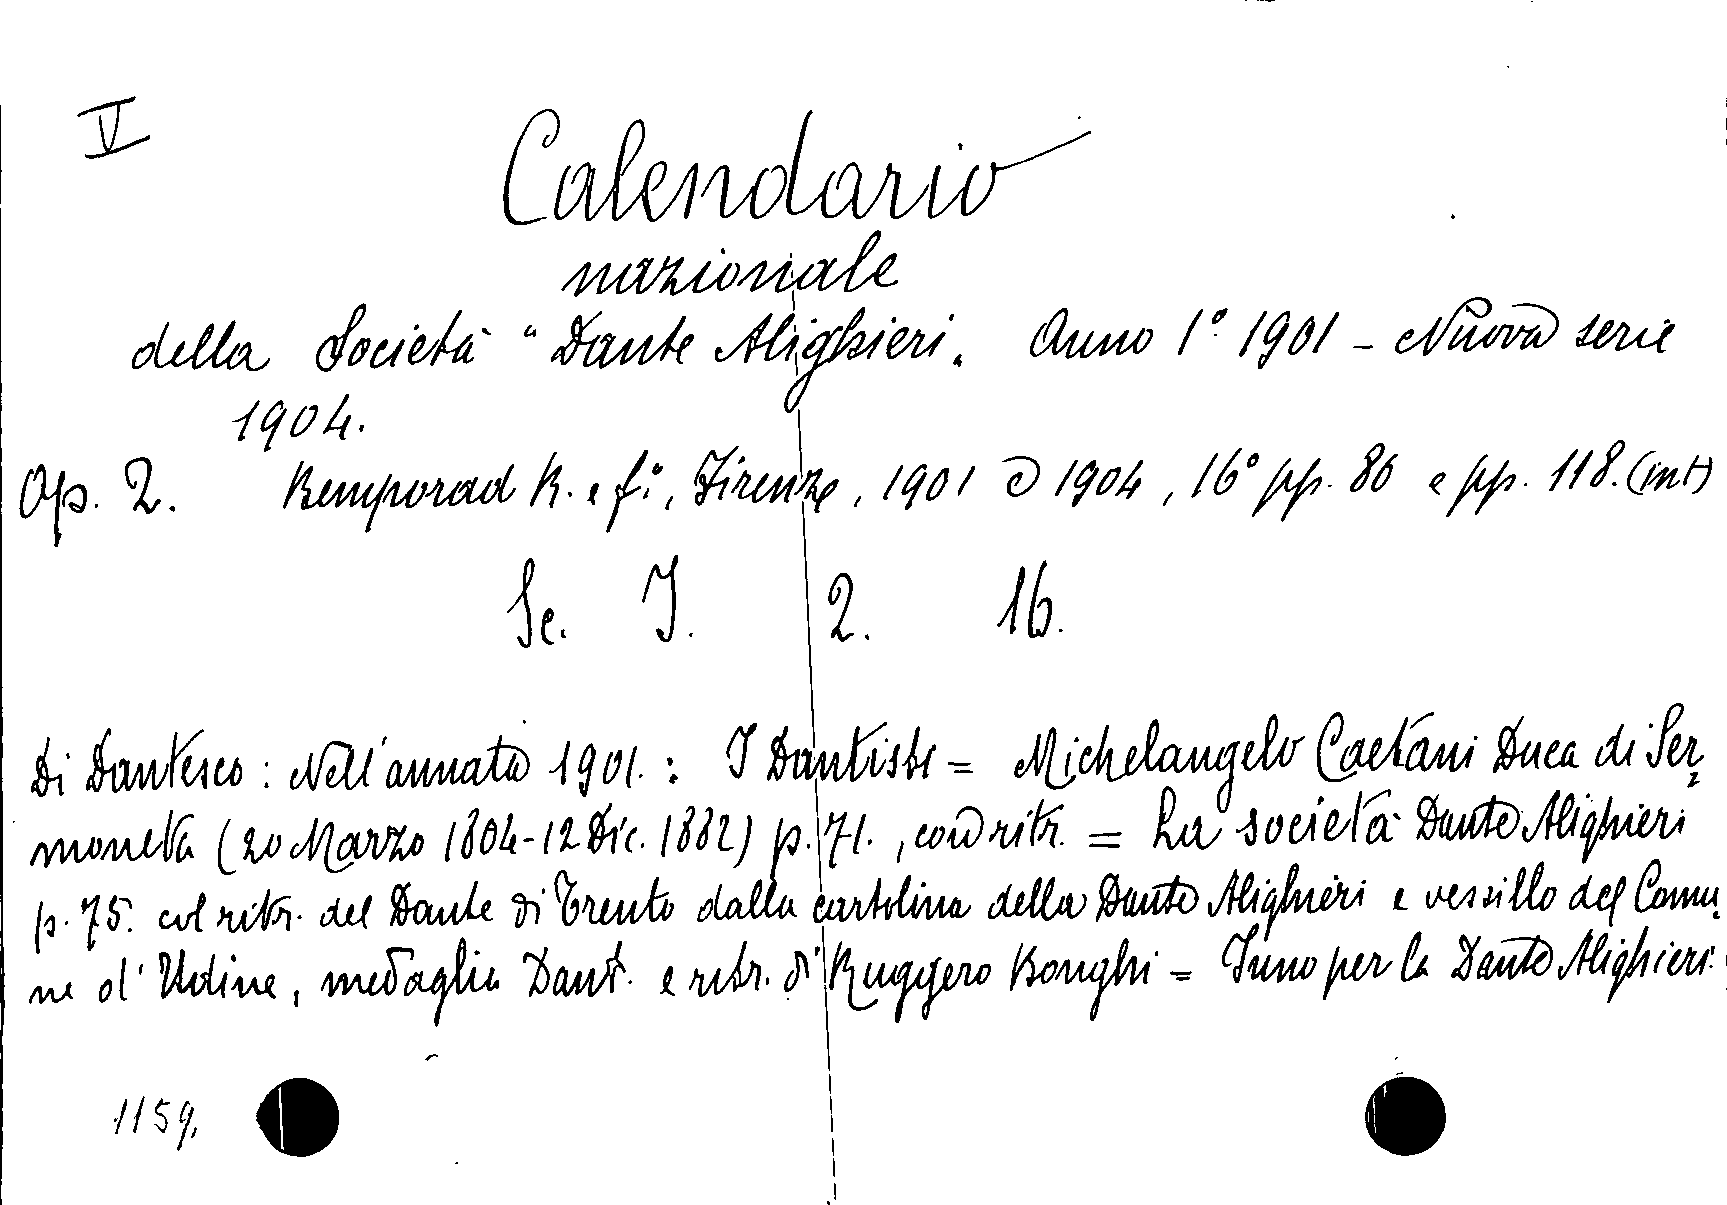 V
Calendario
nazionale
della Società "Dante Alighieri„ Anno 1° 1901 - Nuova serie
1904.
Op. 2. Bemporad R. e f.°, Firenze, 1901 e 1904, 16° pp. 86 e pp. 118. (int)
Sc. I. 2. 16.
Di Dantesco: Nell'annata 1901.: I Dantisti = Michelangelo Caetani Duca di Ser=
moneta (20 Marzo 1804-12 Dic. 1882) p. 71., con ritr. = La società Dante Alighieri
p. 75. col ritr. del Dante di Trento dalla cartolina della Dante Alighieri e vessillo del Comu
ne d'Udine, medaglia Dant. e ritr. di Ruggero Bonghi = Inno per la Dante Alighieri.
1159.